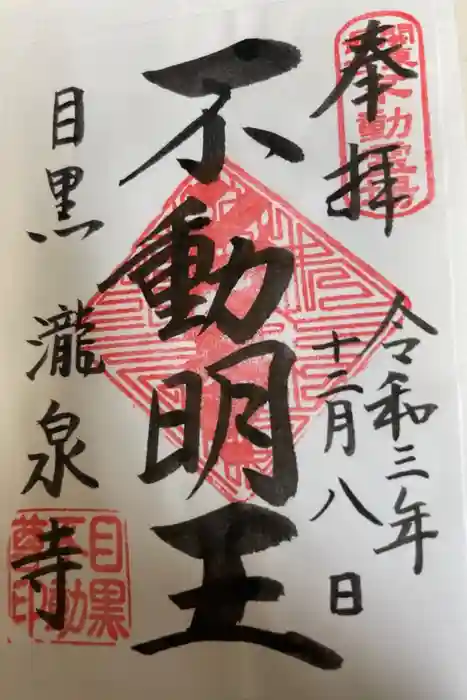 奉拝
令和三年
十二月八日
不動明王
目黒 瀧泉寺
目黒
不動
尊印